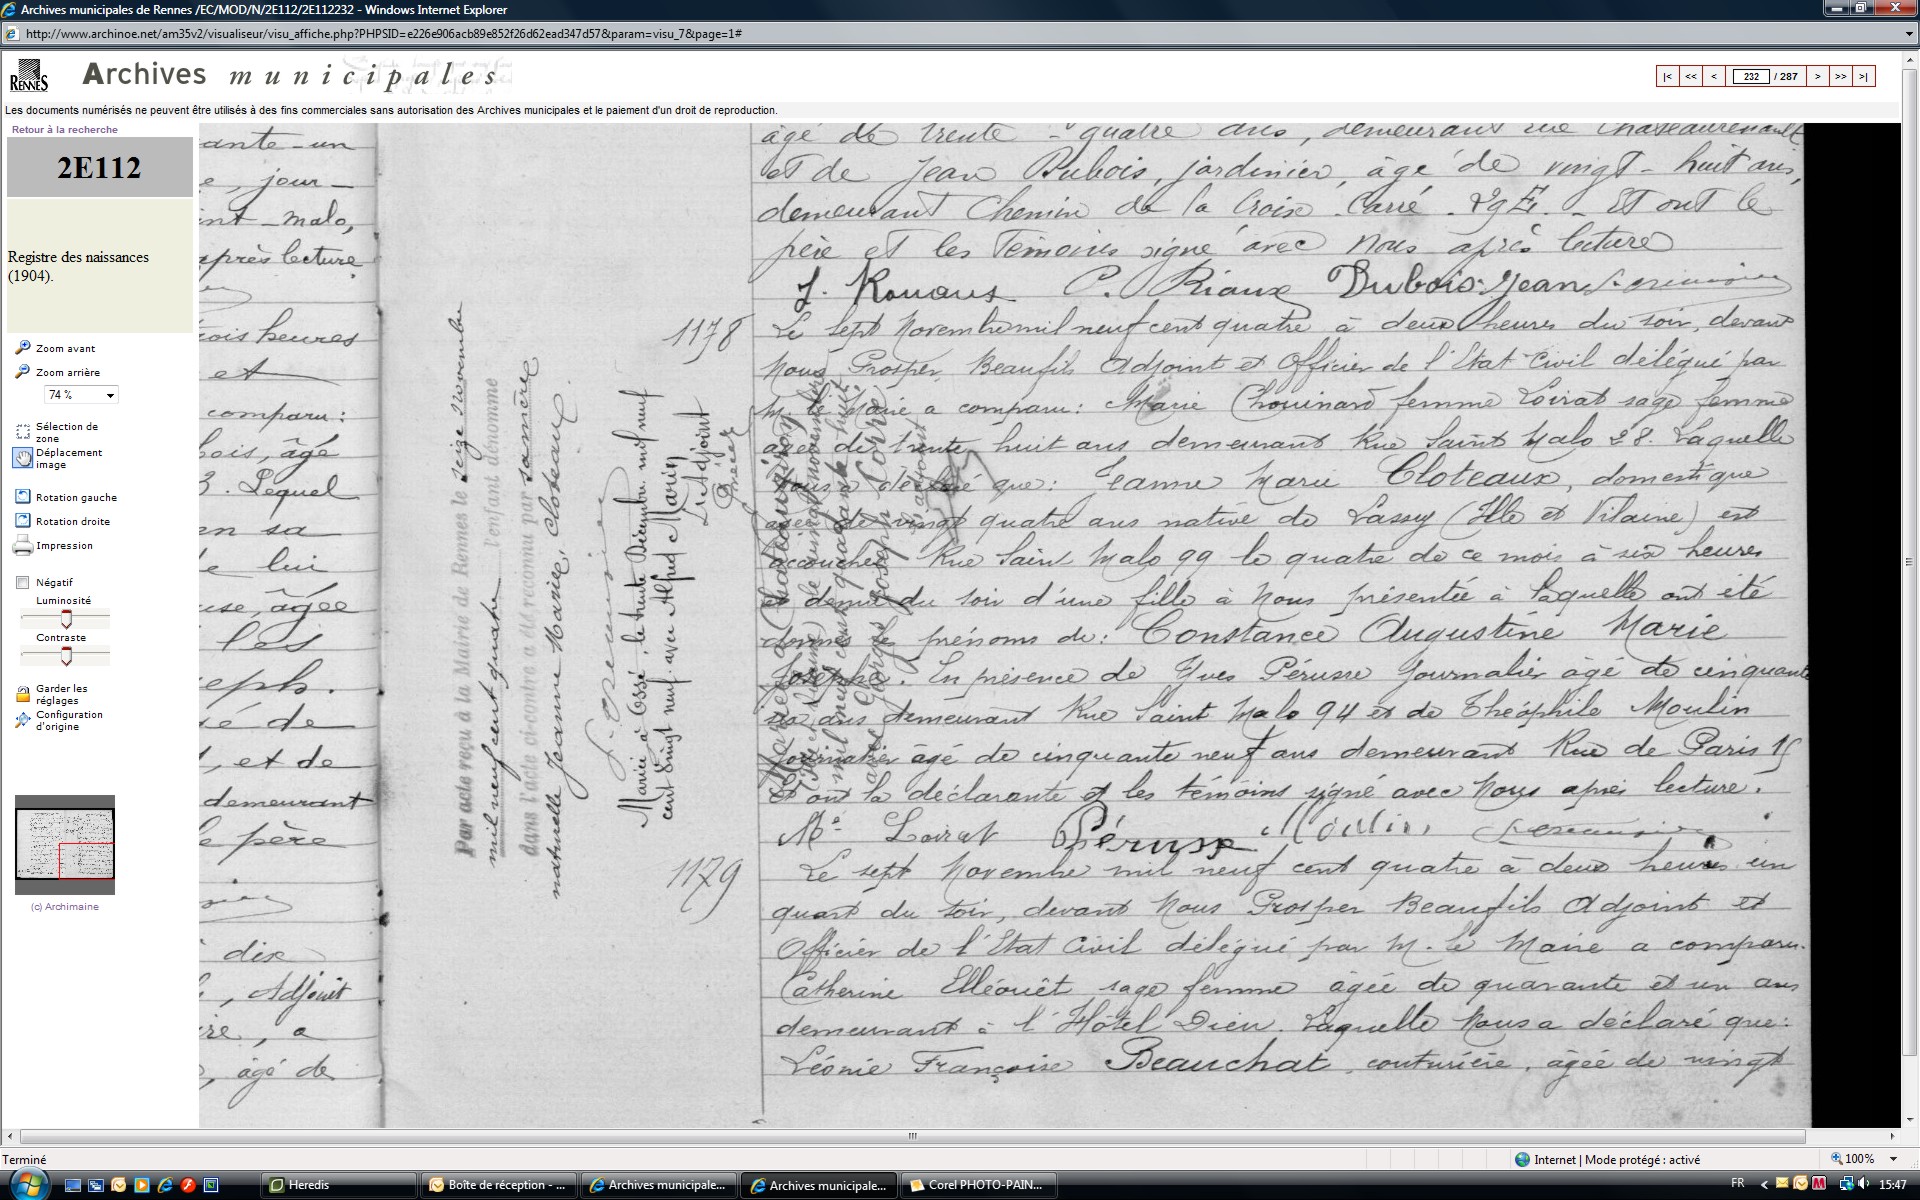 Archives municipales de Rennes /EC/MOD/N/2E112/2E112232 - Windows Internet Explorer
http://www.archinoe.net/am35v2/visualiseur/visu_affiche.php?PHPSID=e226e906acb89e852f26d62ead347d57&param=visu_7&page=1#
RENNES
Archives municipales
|< << < 232 / 287 > >> >|
Les documents numérisés ne peuvent être utilisés à des fins commerciales sans autorisation des Archives municipales et le paiement d'un droit de reproduction.
Retour à la recherche
2E112
Registre des naissances
(1904).
Zoom avant
Zoom arrière
74 %
Sélection de
zone
Déplacement
image
Rotation gauche
Rotation droite
Impression
Négatif
Luminosité
Contraste
Garder les
réglages
Configuration
d'origine
(c) Archimaine
ante-un
, jour-
int-malo,
après lecture
rois heures
et
comparu:
bois, âgé
3. Lequel
en sa
lui
use, âgée
les
eph.
é de
, et de
demeurant
le père
dix
, Adjoint
ire, a
, âgé de
Par acte reçu à la Mairie de Rennes le seize novembre
mil neuf cent quatre l'enfant dénommé
dans l'acte ci-contre a été reconnu par sa mère
naturelle Jeanne Marie Cloteaux.
Mariée à Essé, le trente Décembre mil neuf
cent vingt neuf avec Alfred Marin
L'Adjoint
mil neuf cent quarante huit
avec Georges Joseph
âgé de trente-quatre ans, demeurant rue Chateaurenault
et de Jean Dubois, jardinier, âgé de vingt-huit ans,
demeurant Chemin de la Croix Carrée. - Et ont le
père et les Témoins signé avec Nous après lecture
P. Riaux Dubois Jean
1178
Le sept Novembre mil neuf cent quatre à deux heures du soir, devant
Nous Prosper Beaufils Adjoint et Officier de l'Etat Civil délégué par
M. le Maire a comparu: Marie Chouinard femme Loirat sage femme
agée de trente huit ans demeurant Rue Saint Malo 28. Laquelle
Nous a déclaré que: Jeanne Marie Cloteaux, domestique
agée de vingt quatre ans native de Lassy (Ille et Vilaine) est
accouchée Rue Saint Malo 99 le quatre de ce mois à six heures
et demie du soir d'une fille à Nous présentée à laquelle ont été
donnés les prénoms de: Constance Augustine Marie
Josephe. En présence de Yves Pérusse Journalier âgé de cinquante
six ans demeurant Rue Saint Malo 94 et de Théophile Moulin
Journalier âgé de cinquante neuf ans demeurant Rue de Paris 15
Et ont la déclarante et les témoins signé avec Nous après lecture.
Me Loirat Pérusse Moulin
1179
Le sept Novembre mil neuf cent quatre à deux heures un
quart du soir, devant Nous Prosper Beaufils Adjoint et
Officier de l'Etat Civil délégué par M. le Maire a comparu.
Catherine Elléouët sage femme âgée de quarante et un ans
demeurant à l'Hôtel Dieu. Laquelle Nous a déclaré que:
Léonie Françoise Beauchat, couturière, âgée de vingt
Terminé
Internet | Mode protégé : activé
100%
Heredis
Boîte de réception - ...
Archives municipale...
Archives municipale...
Corel PHOTO-PAIN...
FR
15:47